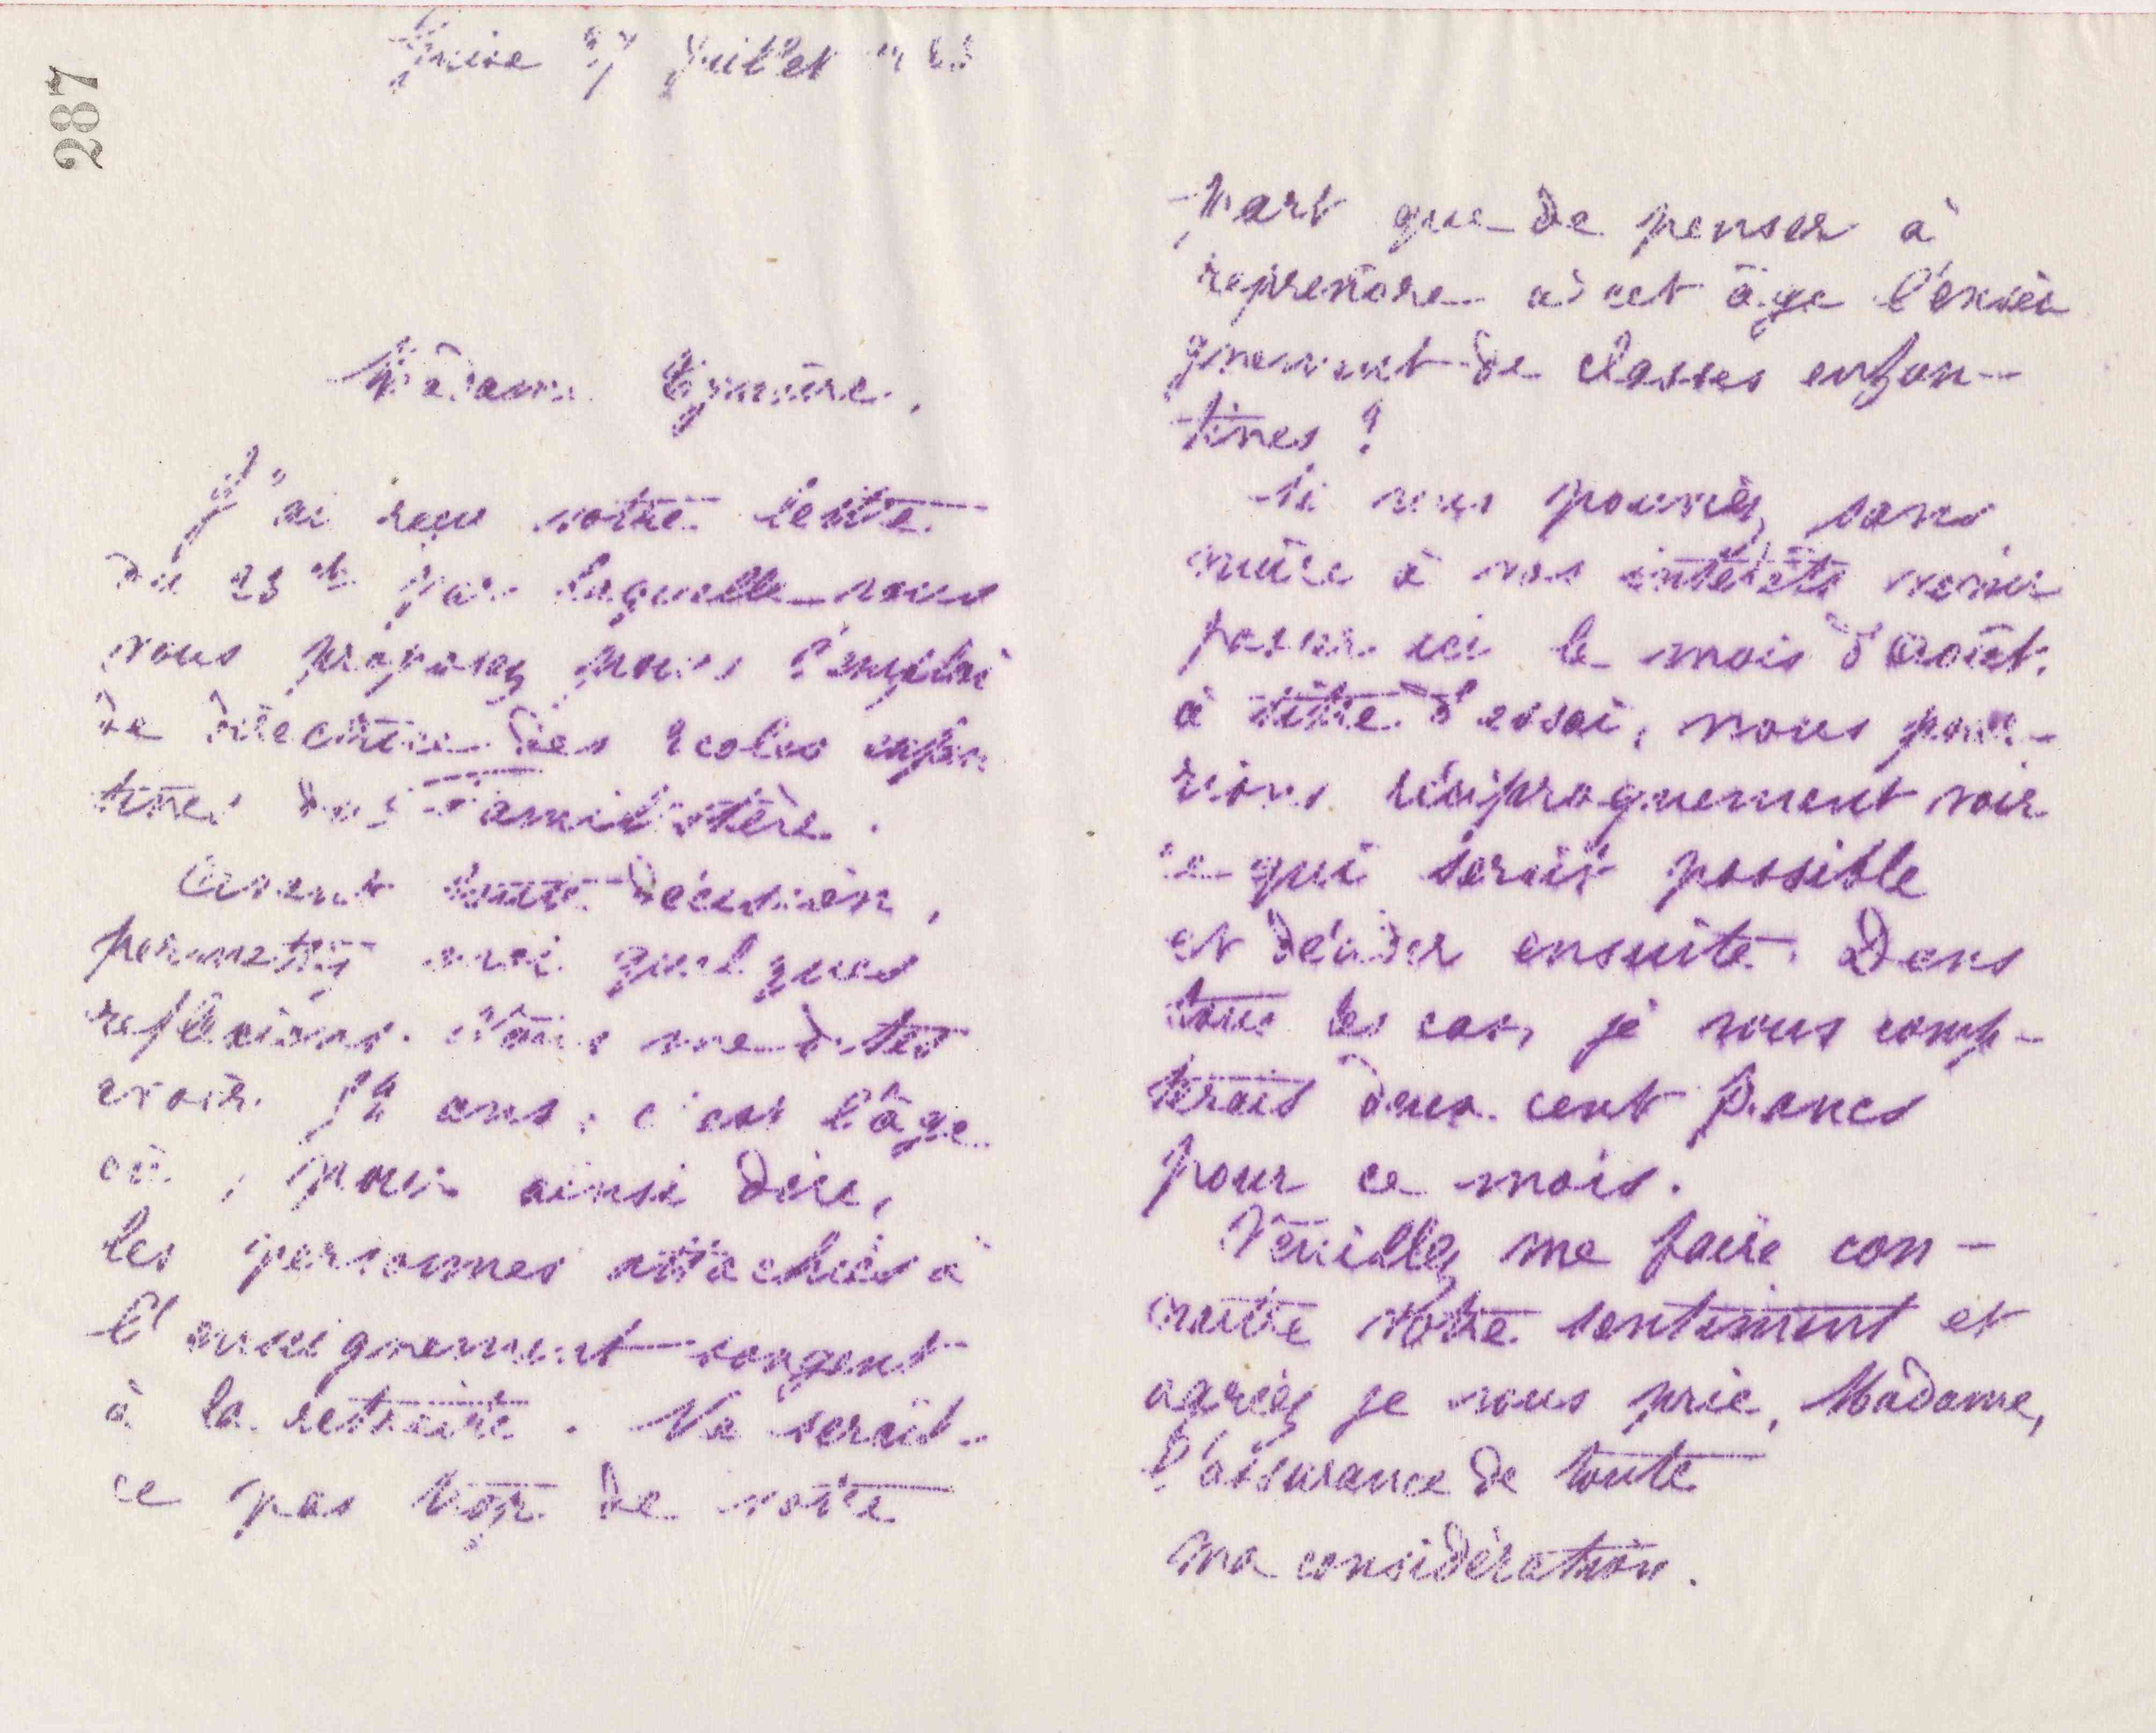 287
27 Juillet
Madame
J'ai reçu votre lettre
du 23 ct par laquelle vous
vous proposez pour l'emploi
de directrice des écoles enfan
tines du Familistère.
Avant toute décision,
permettez moi quelques
reflexions. Vous me dites
avoir 52 ans ; c'est l'âge
où, pour ainsi dire,
les personnes attachées à
l'enseignement songent
à la retraite. Ne serait-
ce pas trop de votre
part que de penser à
reprendre à cet âge l'ensei
gnement de classes enfan-
tines ?
Si vous pouviez, sans
nuire à vos intérêts venir
passer ici le mois d'Août
à titre d'essai, nous pour-
rions réciproquement voir
ce qui serait possible
et décider ensuite. Dans
tous les cas, je vous comp-
terais deux cent francs
pour ce mois.
Veuillez me faire con-
naitre votre sentiment et
agréez je vous prie, Madame,
l'assurance de toute
ma considération.